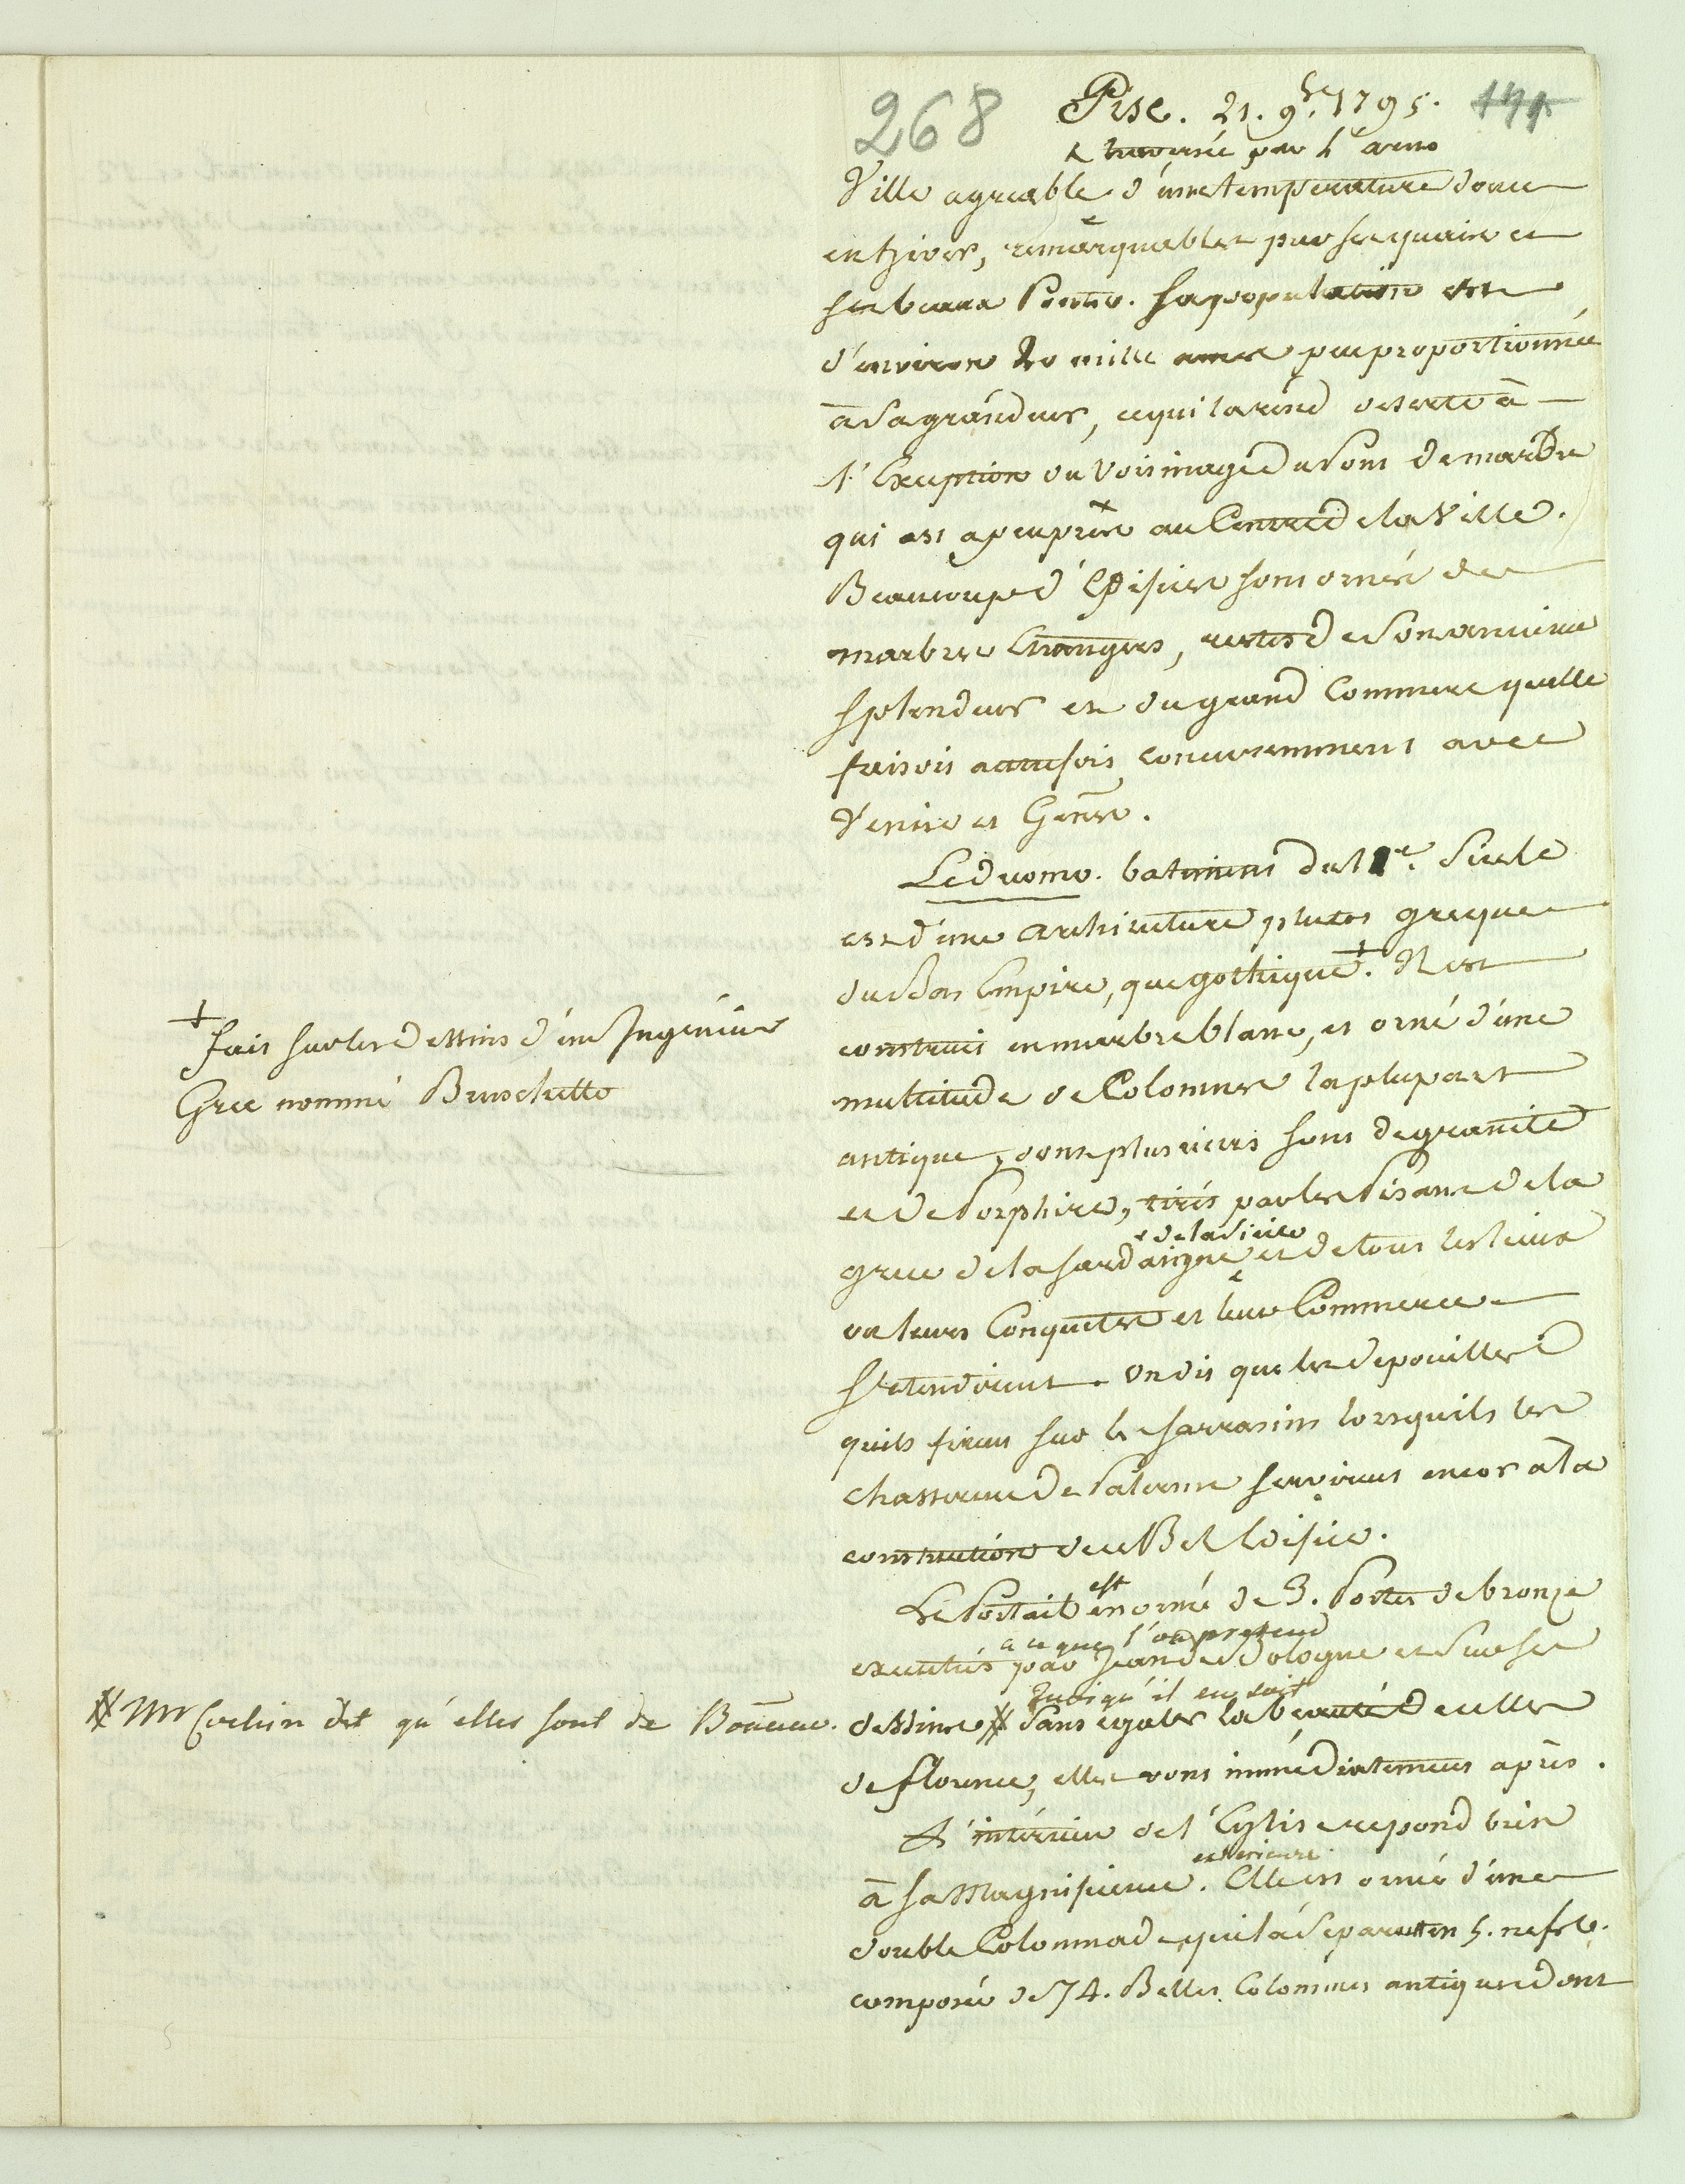 268
Pise. 21. 9bre 1795.
& traversée par l'arno
Ville agreable d'une temperature douce
en hiver, remarquable par ses quais et
ses beaux Ponts. Sa population est
d'environ 20 mille ames peu proportionnée
à sa grandeur, ce qui la rend deserte à
l'Exception du Voisinage du Pont de marbre
qui est a peu près au Centre de la Ville.
Beaucoup d'Edifices sont ornés de
marbres Etrangers, restes de son ancienne
splendeur et du grand Commerce quelle
faisoit autrefois concuremment avec
Venise et Gênes.
Le duomo. batiment du 11e. Siecle
est d'une architecture plutot greque
du Bas Empire, que gothique. + Il est
+ fait sur les dessins d'un Ingénieur
Grec nommé Bruschetto
construit en marbre blanc, et orné d'une
multitude de Colonnes la plupart
antique, dont plusieurs sont de granite
et de Porphire, tirés par les Pisans de la
grece de la Sardaigne et de tous les lieux
& de la Sicile
ou leurs Conquetes et leur Commerce
s'etendoient. On dit que les depouilles
quils firent sur les Sarrasins lorsquils les
chasserent de Palerme servirent encor a la
construction de ce Bel Edifice.
Le Portail est orné de 3. Portes de bronze
a ce que l'on pretend
executés par Jean de Bologne et sur ses
Quoiqu'il en soit
dessins # Sans égaler la beauté de celles
# Mr Cochin dit qu'elles sont de Bonanno.
de florence, elles vont immédiatement après.
L'intérieur de l'Eglise repond bien
à sa Magnificence exterieure. Elle est ornée d'une
double Colonnade, qui la separe en 5. nefs.
composée de 74. Belles Colonnes antiques dont